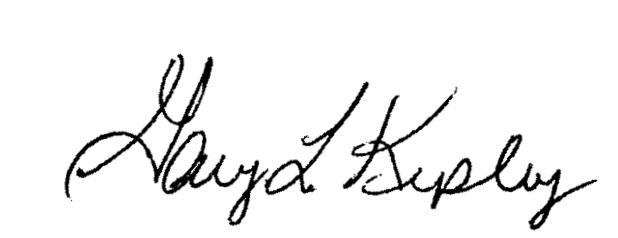 Gary L. Kepley